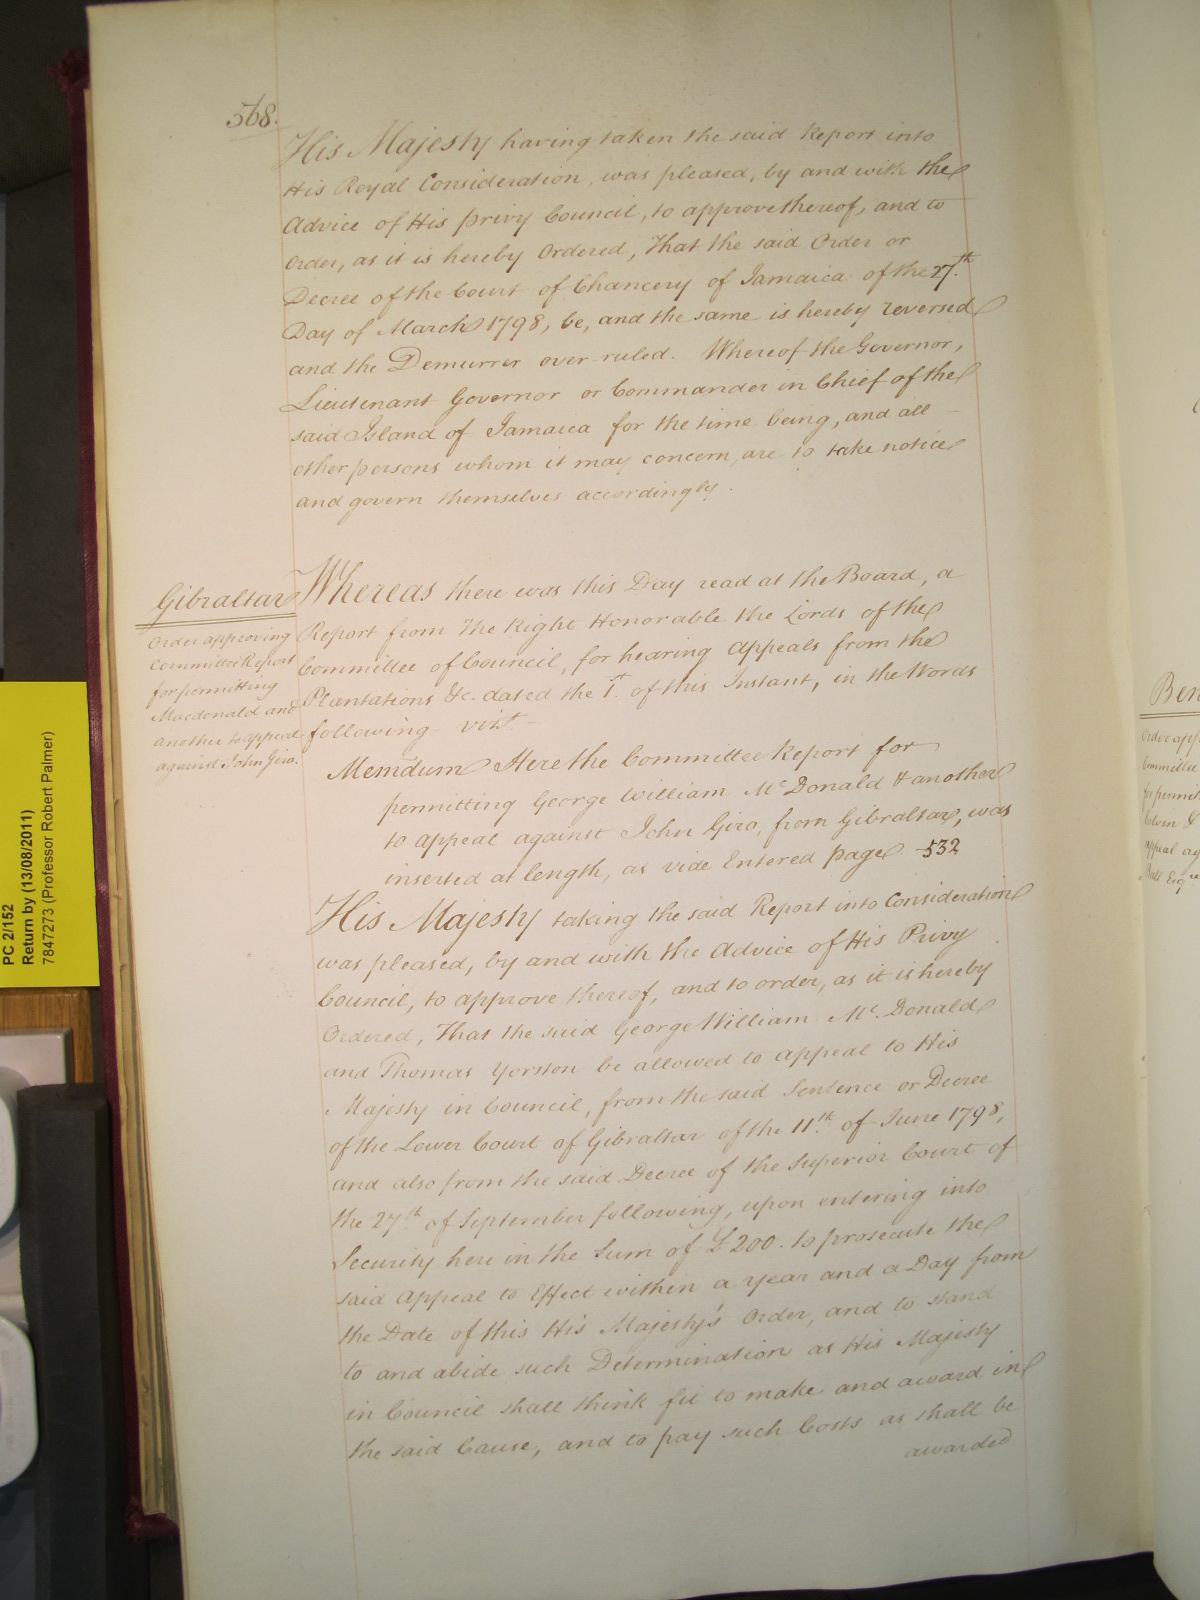 568.
His Majesty having taken the said Report into
His Royal Consideration, was pleased, by and with the
Advice of His Privy Council, to approve thereof, and to
Order, as it is hereby Ordered, That the said Order or
Decree of the Court of Chancery of Jamaica of the 27.th
Day of March 1798, be, and the same is hereby reversed
and the Demurrer over-ruled. Whereof the Governor,
Lieutenant Governor or Commander in Chief of the
said Island of Jamaica for the time being, and all
other persons whom it may concern, are to take notice
and govern themselves accordingly.
Gibraltar
Order approving
Committee Report
for permitting
Macdonald and
another to appeal
against John Giro.
Whereas there was this Day read at the Board, a
Report from The Right Honorable the Lords of the
Committee of Council, for hearing Appeals from the
Plantations &c. dated the 1.st of this Instant, in the Words
following - vizt. -
Memdum Here the Committee Report for
permitting George William McDonald & another
to appeal against John Giro, from Gibraltar, was
inserted at length, as vide Entered page - 532
His Majesty taking the said Report into Consideration
was pleased, by and with the Advice of His Privy
Council, to approve thereof, and to order, as it is hereby
Ordered, That the said George William Mc. Donald
and Thomas Yorston be allowed to appeal to His
Majesty in Council, from the said Sentence or Decree
of the Lower Court of Gibraltar of the 11.th of June 1798,
and also from the said Decree of the Superior Court of
the 27.th of September following, upon entering into
Security here in the Sum of £200. to prosecute the
said Appeal to Effect within a year and a Day from
the Date of this His Majesty's Order, and to stand
to and abide such Determination as His Majesty
in Council shall think fit to make and award in
the said Cause, and to pay such Costs as shall be
awarded
PC 2/152
Return by (13/08/2011)
7847273 (Professor Robert Palmer)
Ber
Order app
Committee
for permit
appeal ag